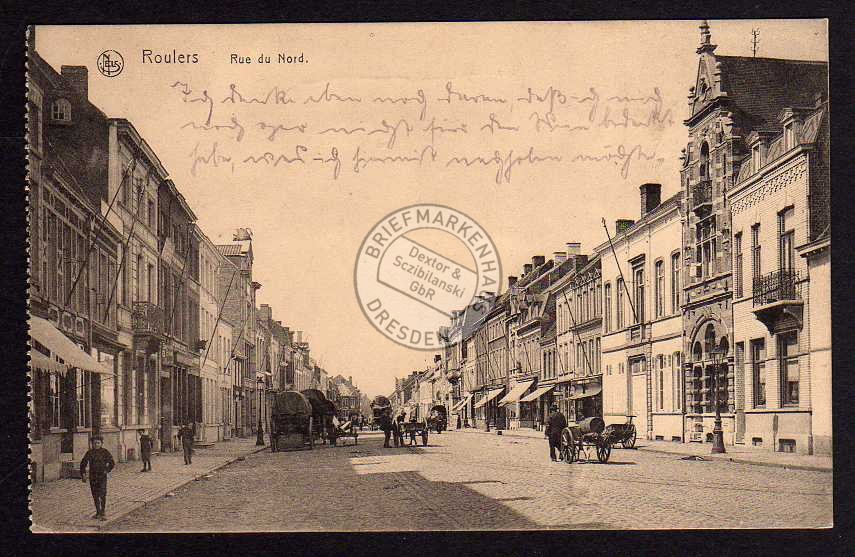 NELS
Roulers Rue du Nord.
Ich denke eben noch daran, daß ich mich
noch gar nicht für den
habe, was ich hiermit nachholen möchte.
BRIEFMARKENHAUS
Dextor &
Sczibilanski
GbR
DRESDEN